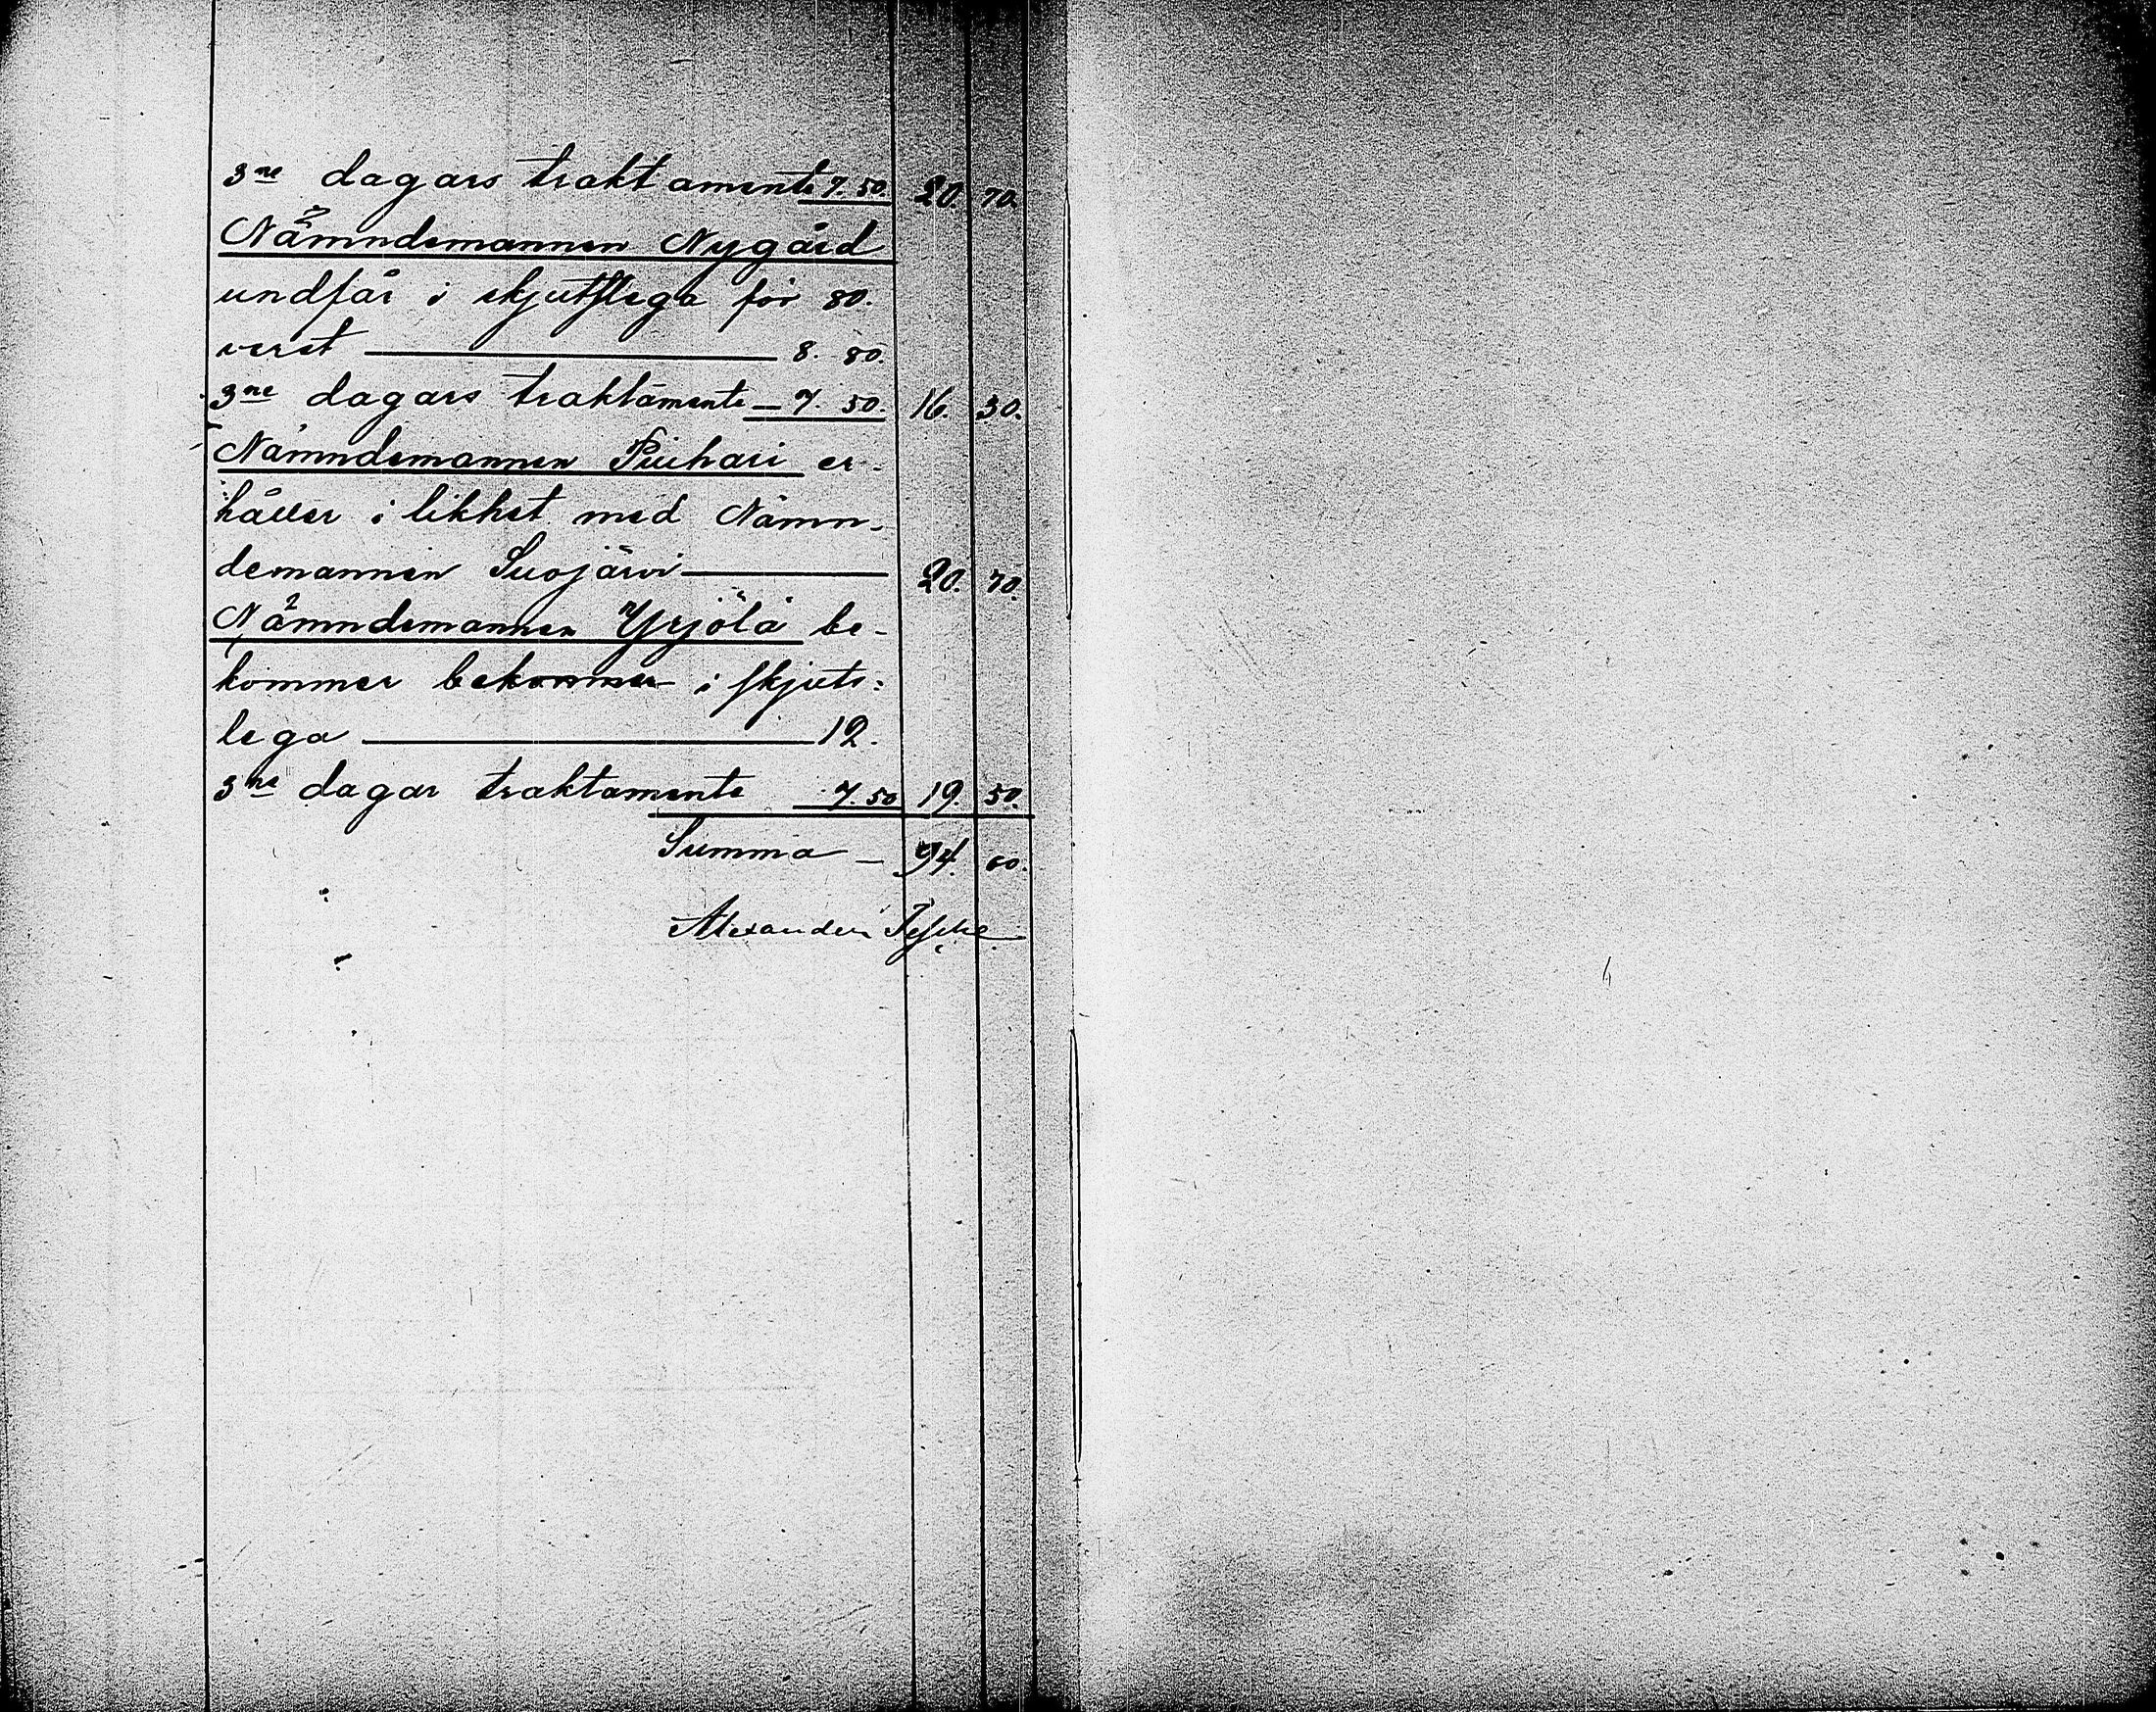 3ne dagars traktamente 7.50. 20. 70.
Nämndemannen Nygård
undfår i skjutslega för 80.
verst — 8. 80.
3ne dagars traktamente — 7. 50. 16. 30.
Nämndemannen Puihari er-
håller i likhet med Nämn-
demannen Suojärvi — 20. 70.
Nämndemannen Yrjölä be-
kommer bekommer i skjuts=
lega — 12.
3ne dagar traktamente 7.50 19. 50.
Summa — 94. 60.
Alexander